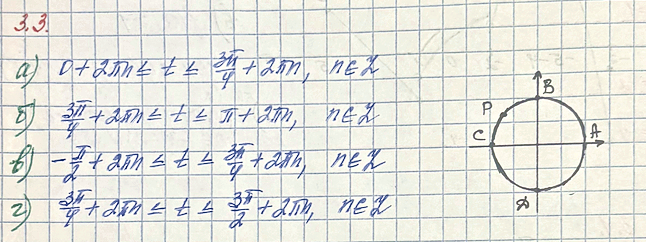 3.3.
а) 0 + 2πn ≤ t ≤ 3π/4 + 2πn, n∈Z
б) 3π/4 + 2πn ≤ t ≤ π + 2πn, n∈Z
в) -π/2 + 2πn ≤ t ≤ 3π/4 + 2πn, n∈Z
г) 3π/4 + 2πn ≤ t ≤ 3π/2 + 2πn, n∈Z
B
P
C A
D